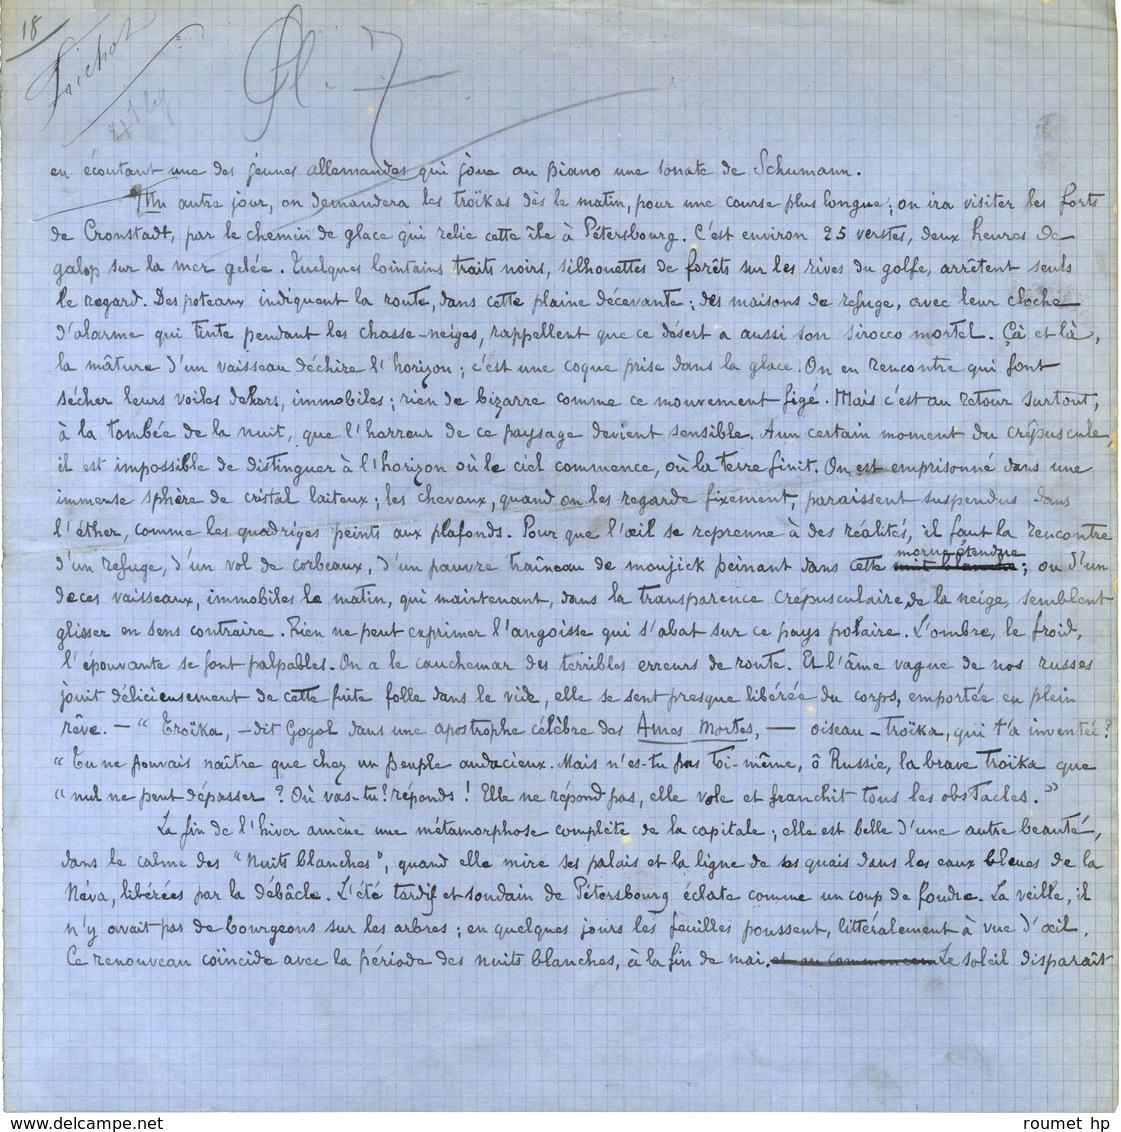 18
Pl. 7
en écoutant une des jeunes allemandes qui joue au piano une sonate de Schumann.
Un autre jour, on demandera les troïkas dès le matin, pour une course plus longue; on ira visiter les forts
de Cronstadt, par le chemin de glace qui relie cette île à Pétersbourg. C'est environ 25 verstes, deux heures de
galop sur la mer gelée. Quelques lointains traits noirs, silhouettes de forêts sur les rives du golfe, arrêtent seuls
le regard. Des poteaux indiquent la route, dans cette plaine décevante; des maisons de refuge, avec leur cloche
d'alarme qui tinte pendant les chasse-neiges, rappellent que ce désert a aussi son sirocco mortel. Çà et là,
la mâture d'un vaisseau déchire l'horizon; c'est une coque prise dans la glace. On en rencontre qui font
sécher leurs voiles dehors, immobiles; rien de bizarre comme ce mouvement figé. Mais c'est au retour surtout,
à la tombée de la nuit, que l'horreur de ce paysage devient sensible. A un certain moment du crépuscule,
il est impossible de distinguer à l'horizon où le ciel commence, où la terre finit. On est emprisonné dans une
immense sphère de cristal laiteux; les chevaux, quand on les regarde fixement, paraissent suspendus dans
l'éther, comme les quadriges peints aux plafonds. Pour que l'œil se reprenne à des réalités, il faut la rencontre
morne étendue
d'un refuge, d'un vol de corbeaux, d'un pauvre traîneau de moujick peinant dans cette nuit blanche; ou d'un
de ces vaisseaux, immobiles le matin, qui maintenant, dans la transparence crépusculaire de la neige, semblent
glisser en sens contraire. Rien ne peut exprimer l'angoisse qui s'abat sur ce pays polaire. L'ombre, le froid,
l'épouvante se font palpables. On a le cauchemar des terribles erreurs de route. Et l'âme vague de nos russes
jouit délicieusement de cette fuite folle dans le vide, elle se sent presque libérée du corps, emportée en plein
rêve. — " Troïka, — dit Gogol dans une apostrophe célèbre des Ames Mortes, — oiseau-troïka, qui t'a inventée?
" Tu ne pouvais naître que chez un peuple audacieux. Mais n'es-tu pas toi-même, ô Russie, la brave troïka que
" nul ne peut dépasser? Où vas-tu? réponds! Elle ne répond pas, elle vole et franchit tous les obstacles."
La fin de l'hiver amène une métamorphose complète de la capitale; elle est belle d'une autre beauté,
dans le calme des "Nuits blanches", quand elle mire ses palais et la ligne de ses quais dans les eaux bleues de la
Néva, libérées par la débâcle. L'été tardif et soudain de Pétersbourg éclate comme un coup de foudre. La veille, il
n'y avait pas de bourgeons sur les arbres; en quelques jours les feuilles poussent, littéralement à vue d'œil.
Ce renouveau coïncide avec la période des nuits blanches, à la fin de mai, et au commencem Le soleil disparaît
roumet hp
www.delcampe.net